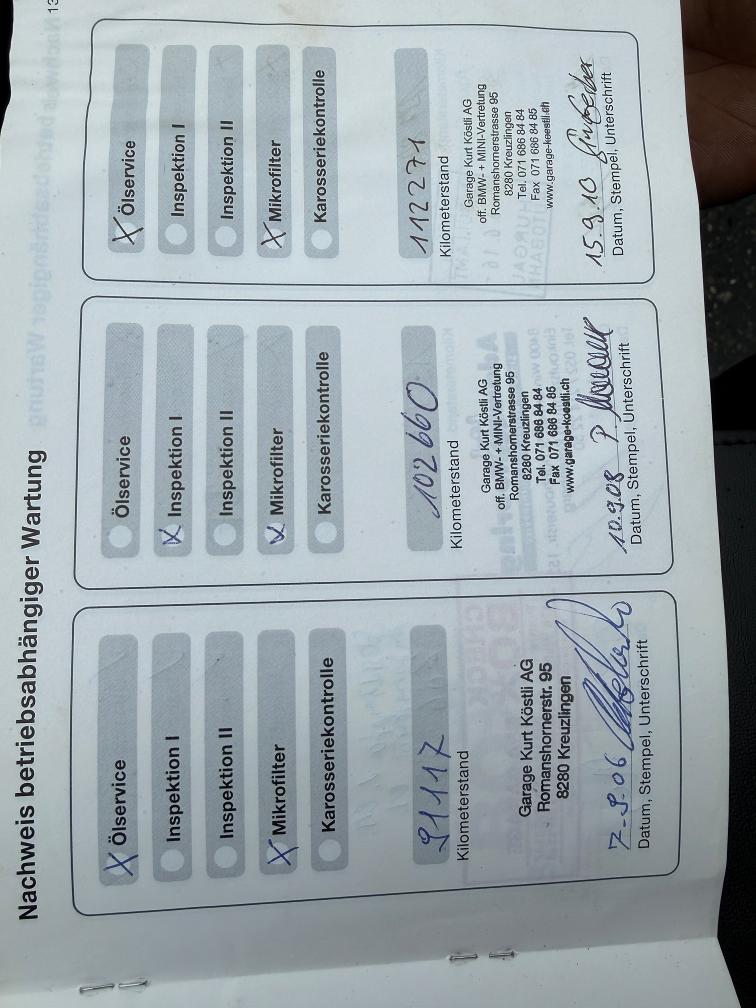 Nachweis betriebsabhängiger Wartung
X Ölservice
Inspektion I
Inspektion II
X Mikrofilter
Karosseriekontrolle
91117
Kilometerstand
Garage Kurt Köstli AG
Romanshornerstr. 95
8280 Kreuzlingen
7-9.06
Datum, Stempel, Unterschrift
Ölservice
X Inspektion I
Inspektion II
X Mikrofilter
Karosseriekontrolle
102660
Kilometerstand
Garage Kurt Köstli AG
off. BMW- + MINI-Vertretung
Romanshornerstrasse 95
8280 Kreuzlingen
Tel. 071 686 84 84
Fax 071 686 84 85
www.garage-koestli.ch
10.9.08 P.
Datum, Stempel, Unterschrift
X Ölservice
Inspektion I
Inspektion II
X Mikrofilter
Karosseriekontrolle
112271
Kilometerstand
Garage Kurt Köstli AG
off. BMW- + MINI-Vertretung
Romanshornerstrasse 95
8280 Kreuzlingen
Tel. 071 686 84 84
Fax 071 686 84 85
www.garage-koestli.ch
15.9.10
Datum, Stempel, Unterschrift